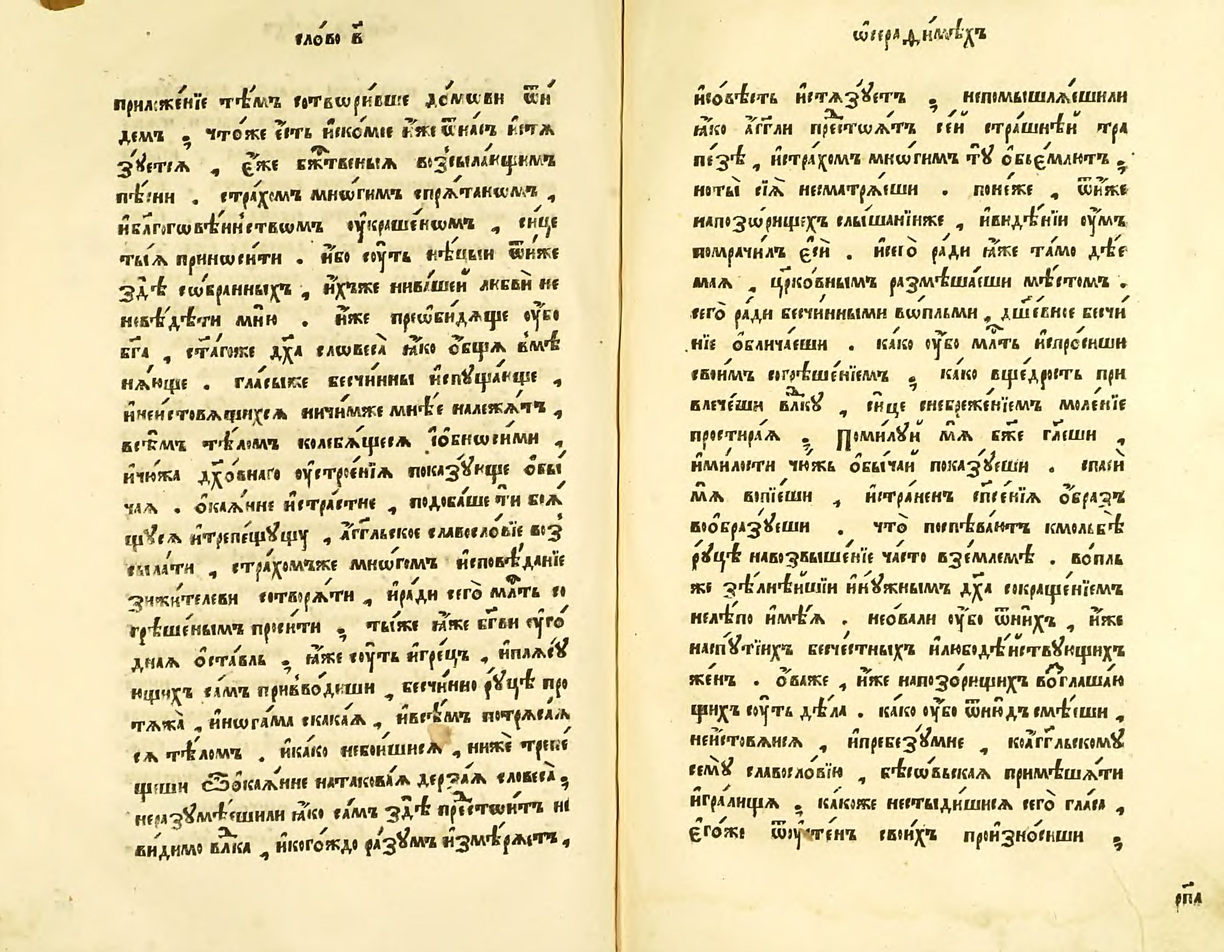 сло́во в҃
приложе́нїе тѣ́мъ сотвори́вше до́мѡви ѿи́
демъ ; что́же є҆́сть и҆ско́мое и҆́же ѿна́съ и҆стѧ
зꙋ́етсѧ , є҆́же бж҃твеныѧ возсыла́ющимъ
пѣ́сни . стра́хомъ мнѡ́гимъ спрѧ́таномъ ,
и҆бл҃гоговѣ́инствѡмъ оу҆кра́шеномъ , си́це
тыѧ̀ приноси́ти . и҆́бо соу́ть нѣ́цыи ѿи́же
здѣ̀ со́бранныхъ , и҆́хъже нива́шей любвѝ не
невѣ́дѣти мню̀ . и҆́же преѡби́дѧще оу҆́бо
бг҃а , ст҃а́гоже дх҃а словеса̀ ꙗ҆́ко о҆́бщаѧ вмѣ
нѧ́юще . гла́сыже бесчи́нны и҆спꙋща́юще ,
и҆неи́стовѧщихсѧ ничи́мже мнѣ́е належа́тъ ,
всѣ́мъ тѣ́ломъ колебѧ́щесѧ и҆ѡбносѧ́ими ,
и҆чю́жа дꙋхо́внаго оу҆строе́нїѧ показꙋ́юще о҆бы́
чаѧ . о҆каѧ́нне и҆стра́стне , подоба́ше ти боѧ́
щꙋсѧ и҆трепе́щꙋщꙋ , а҆́гг҃льское славосло́вїе воз
сыла́ти , стра́хомъже мно́гомъ и҆сповѣ́данїе
зижи́телеви сотворѧ́ти , и҆ра́ди сегѡ̀ мл҃ть со
грѣше́нымъ проси́ти ; ты́же ꙗ҆́же бг҃ви оу҆го́
днаѧ о҆ста́вль , ꙗ҆́же соу́ть и҆гре́цъ , и҆плѧ́сꙋ
ющихъ са́мъ приво́диши , бесчи́нно рꙋ́цѣ про
тѧжа̀ , и҆нога́ма скака́ѧ , и҆всѣ́мъ потрѧса́ѧ
сѧ тѣ́ломъ . и҆ка́ко небои́шисѧ , нижѐ трепе́
щеши ѽѡкаѧ́нне натакова́ѧ дерза́ѧ словеса̀ ;
неразꙋмѣ́ешили ꙗ҆́ко са́мъ здѣ̀ престои́тъ не
ви́димо вл҃ка , и҆кого́ждо ра́зꙋмъ и҆змѣрѧ́етъ ,
ѡ҆серафи́мѣхъ
и҆со́вѣсть и҆стѧзꙋ́етъ ; непомышлѧ́ешили
ꙗ҆́ко а҆́гг҃ли престоѧ́тъ се́й стра́шнѣй тра
пе́зѣ , и҆стра́хомъ мно́гимъ тꙋ̀ о҆бъе́млютъ ;
ноты̀ сїѧ̀ несматрѧ́еши . поне́же , ѿи́же
напозо́рищехъ слы́шанїиже , и҆видѣ́нїи оу҆́мъ
помрачи́лъ є҆сѝ . и҆сегѡ̀ ра́ди ꙗ҆́же та́мо дѣ́е
маѧ , цр҃ко́внымъ размѣша́еши мѣ́стомъ .
сегѡ̀ ра́ди бесчи́нными во́пльми , дш҃е́вное бесчи́
нїе о҆блича́еши . ка́ко оу҆́бо мл҃ть и҆спро́сиши
свои́мъ согрѣше́нїемъ ; ка́ко вще́дрость при
влече́ши вл҃кꙋ , си́це снебреже́нїемъ моле́нїе
простира́ѧ ; Поми́лꙋй мѧ̀ бж҃е гл҃еши ,
и҆ми́лости чю́жь о҆бы́чай показꙋ́еши . спаси́
мѧ̀ вопїе́ши , и҆стра́ненъ сп҃се́нїѧ о҆́бразъ
воо҆бразꙋ́еши . что̀ поспѣва́ютъ кмольбѣ̀
рꙋ́цѣ навозвыше́нїе ча́сто взе́млемѣ . во́пль
же зѣлнѣ́йшїи и҆нꙋ́жнымъ дх҃а сокраще́нїемъ
нелѣ́по и҆мѣ́ѧ . несова́ли оу҆бо ѿни́хъ , и҆́же
напꙋ́тїихъ бесче́стныхъ и҆любодѣ́йствꙋющихъ
же́нъ . о҆ва́же , и҆́же напозо́рищихъ воглаша́ю
щихъ соу́ть дѣ́ла . ка́ко оу҆́бо ѿню́дъ смѣ́еши ,
неи́стовѧисѧ , и҆пребезꙋ́мне , коа҆́гг҃льскомꙋ
семꙋ̀ славосло́вїю , бѣсо́вьскаѧ примѣша́ти
и҆гра́лищѧ ; ка́коже нестыди́шисѧ сего̀ гла́са ,
є҆го́же ѿоу҆сте́нъ свои́хъ произно́сиши ;
рп҃а